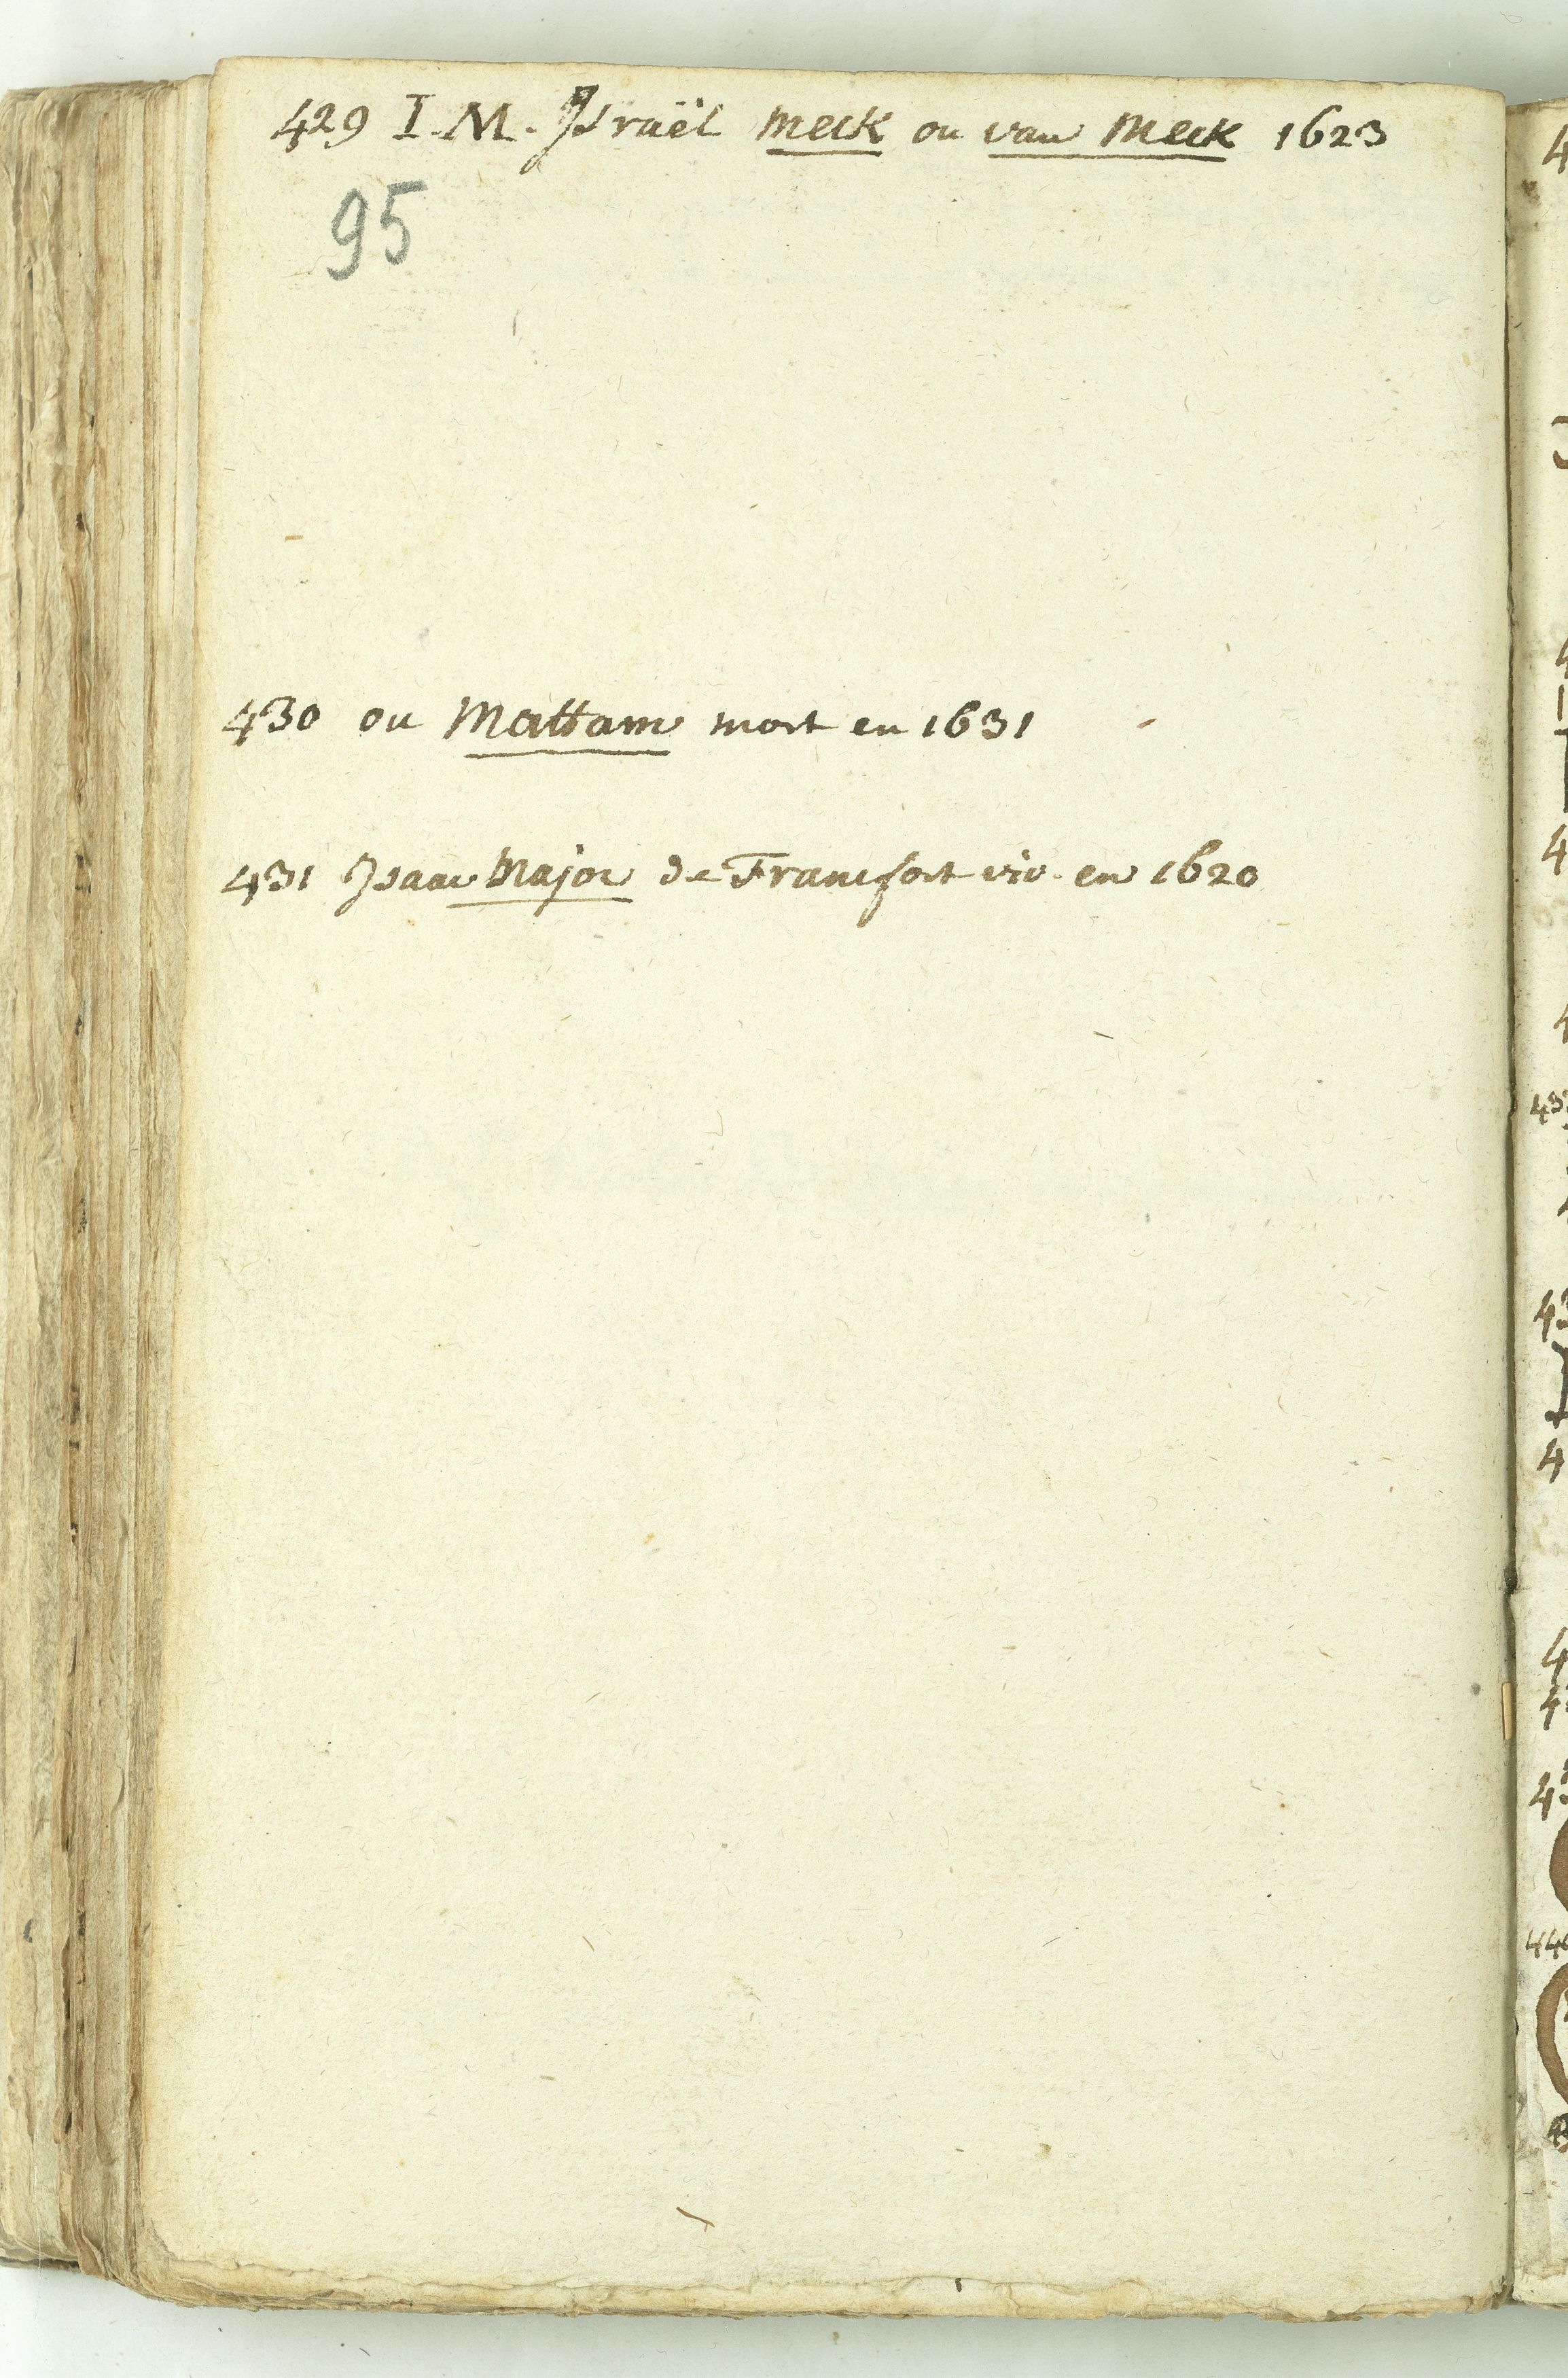 429 I. M. Israël Meck ou van Meck 1623
95
430 ou Mattam mort en 1631
431 Isaac Major de Francfort viv. en 1620